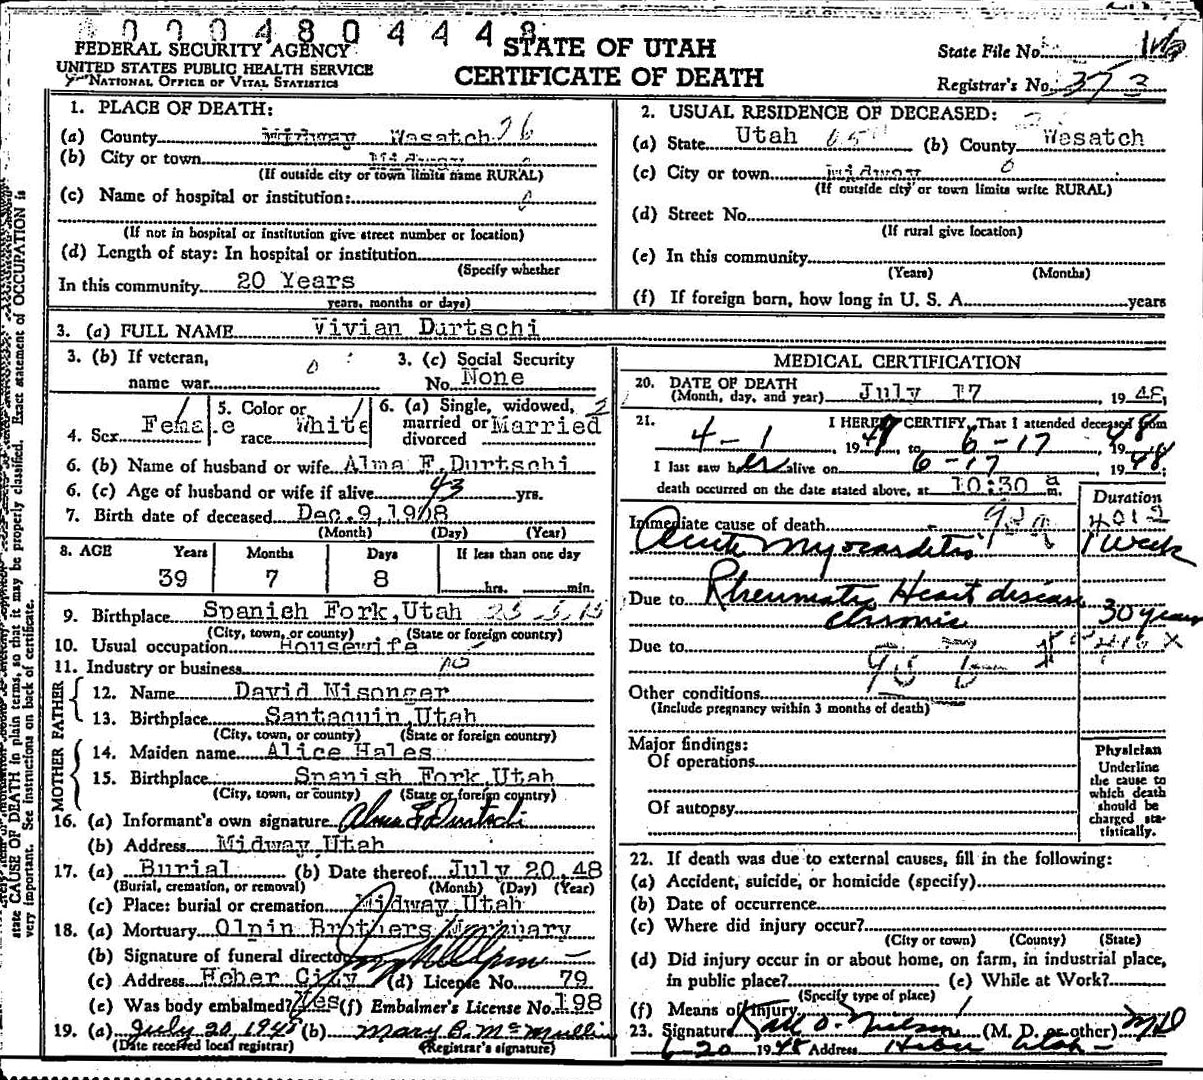 0 0 0 4 8 0 4 4 4 8
FEDERAL SECURITY AGENCY
UNITED STATES PUBLIC HEALTH SERVICE
NATIONAL OFFICE OF VITAL STATISTICS
STATE OF UTAH
CERTIFICATE OF DEATH
State File No.
Registrar's No. 373
1. PLACE OF DEATH:
(a) County Midway Wasatch 26
(b) City or town Midway
(If outside city or town limits name RURAL)
(c) Name of hospital or institution:
(If not in hospital or institution give street number or location)
(d) Length of stay: In hospital or institution
(Specify whether
In this community 20 Years
years, months or days)
2. USUAL RESIDENCE OF DECEASED:
(a) State Utah (b) County Wasatch
(c) City or town Midway
(If outside city or town limits write RURAL)
(d) Street No.
(If rural give location)
(e) In this community
(Years) (Months)
(f) If foreign born, how long in U. S. A. years
3. (a) FULL NAME Vivian Durtschi
3. (b) If veteran,
name war
3. (c) Social Security
No. None
4. Sex Female
5. Color or
race White
6. (a) Single, widowed,
married or
divorced Married
6. (b) Name of husband or wife Alma F. Durtschi
6. (c) Age of husband or wife if alive 43 yrs.
7. Birth date of deceased Dec. 9, 1908
(Month) (Day) (Year)
8. AGE Years Months Days If less than one day
39 7 8 hrs. min.
9. Birthplace Spanish Fork, Utah
(City, town, or county) (State or foreign country)
10. Usual occupation Housewife
11. Industry or business
FATHER
12. Name David Nisonger
13. Birthplace Santaquin, Utah
(City, town, or county) (State or foreign country)
MOTHER
14. Maiden name Alice Hales
15. Birthplace Spanish Fork, Utah
(City, town, or county) (State or foreign country)
16. (a) Informant's own signature Alma F Durtschi
(b) Address Midway, Utah
17. (a) Burial (b) Date thereof July 20, 48
(Burial, cremation, or removal) (Month) (Day) (Year)
(c) Place: burial or cremation Midway Utah
18. (a) Mortuary Olpin Brothers Mortuary
(b) Signature of funeral director
(c) Address Heber City (d) License No. 79
(e) Was body embalmed? Yes (f) Embalmer's License No. 198
19. (a) July 20, 1948 (b) Mary B. McMullin
(Date received local registrar) (Registrar's signature)
MEDICAL CERTIFICATION
20. DATE OF DEATH
(Month, day, and year) July 17 1948,
21. I HEREBY CERTIFY, That I attended deceased from
4-1 1948, to 6-17, 1948
I last saw her alive on 6-17 1948;
death occurred on the date stated above, at 10:30 a m.
Duration
Immediate cause of death
Acute Myocarditis 1 week
Due to Rheumatic Heart disease
chronic 30 years
Due to
Other conditions
(Include pregnancy within 3 months of death)
Major findings:
Of operations
Of autopsy
Physician
Underline
the cause to
which death
should be
charged sta-
tistically.
22. If death was due to external causes, fill in the following:
(a) Accident, suicide, or homicide (specify)
(b) Date of occurrence
(c) Where did injury occur?
(City or town) (County) (State)
(d) Did injury occur in or about home, on farm, in industrial place,
in public place? (e) While at Work?
(Specify type of place)
(f) Means of Injury
23. Signature Karl O. Nielson (M. D. or other) MD
6-20 1948 Address Heber Utah
state CAUSE OF DEATH in plain terms, so that it may be properly classified. Exact statement of OCCUPATION is
very important. See instructions on back of certificate.